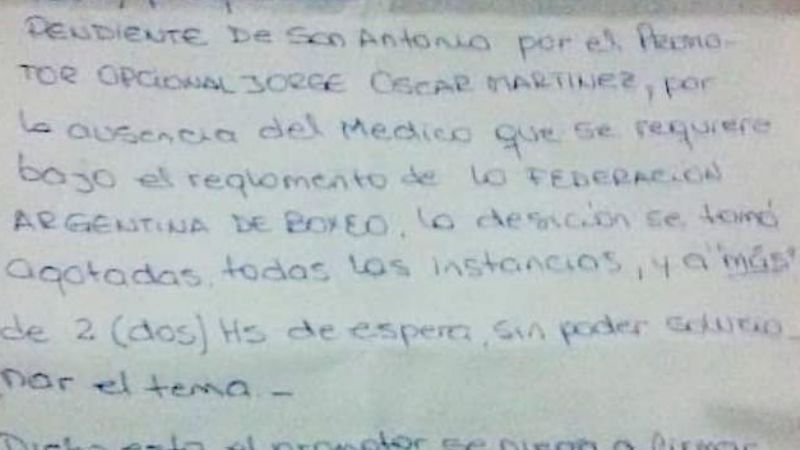 PENDIENTE DE San Antonio por el Promo-
TOR OPCIONAL JORGE OSCAR MARTINEZ, por
la ausencia del Medico que se requiere
bajo el reglomento de la FEDERACION
ARGENTINA DE BOXEO, la desición se tomó
agotadas, todas las instancias, y a "más"
de 2 (dos) Hs de espera, sin poder solucio-
nar el tema. -
Dicho esto el promotor se niega a firmar